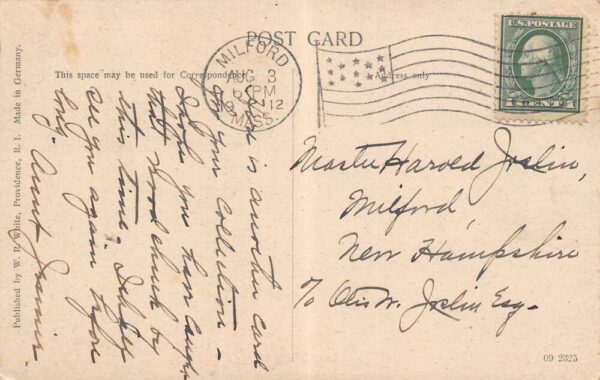 POST CARD
This space may be used for Correspondence
Address only
MILFORD
AUG 3
6 PM
1912
MASS.
U.S. POSTAGE
1 CENT 1
Here is another card
for your collection –
I hope you have caught
that Woodchuck by
this time. I shall
see you again before
long. Aunt Jennie.
Master Harold Joslin,
Milford,
New Hampshire
c/o Otis W. Joslin Esq.
Published by W. R. White, Providence, R. I. Made in Germany.
09 2325